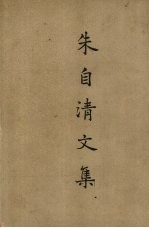 朱自清文集